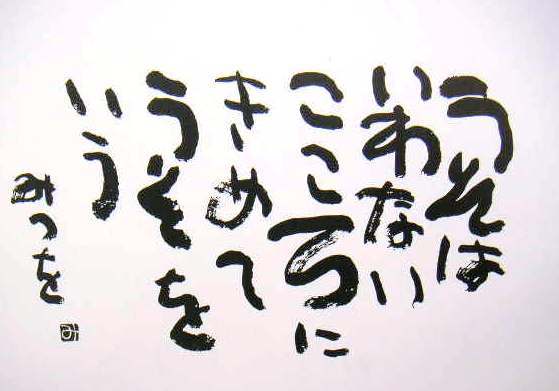 うそは
いわない
こころに
きめて
うそを
いう
みつを
み